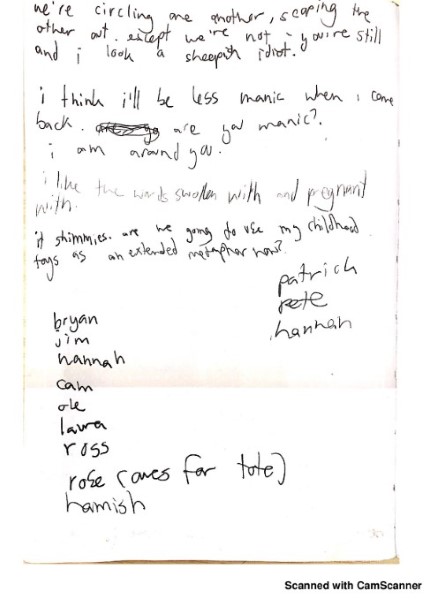 we're circling one another, scoping the
other out. except we're not, you're still
and i look a sheepish idiot.
i think i'll be less manic when i come
back. are you manic?
i am around you.
i like the words swollen with and pregnant
with.
it shimmies. are we going to use my childhood
toys as an extended metaphor now?
patrich
pete
hannah
bryan
jim
hannah
cam
ole
laura
ross
rose (owes for tote)
hamish
Scanned with CamScanner